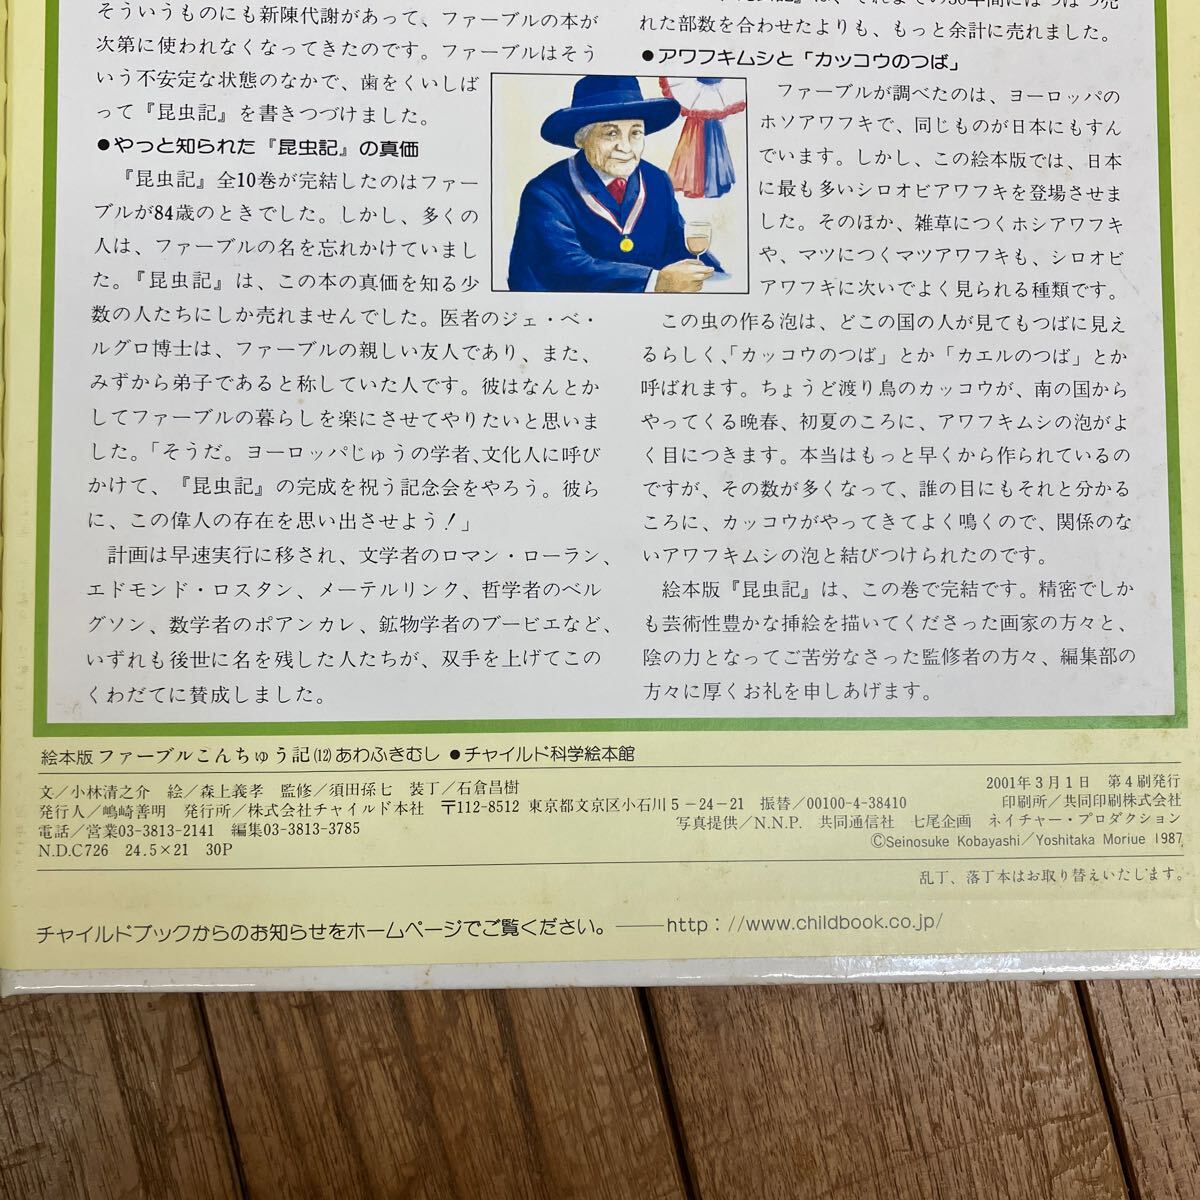 そういうものにも新陳代謝があって、ファーブルの本が
次第に使われなくなってきたのです。ファーブルはそう
いう不安定な状態のなかで、歯をくいしば
って『昆虫記』を書きつづけました。
●やっと知られた『昆虫記』の真価
『昆虫記』全10巻が完結したのはファー
ブルが84歳のときでした。しかし、多くの
人は、ファーブルの名を忘れかけていまし
た。『昆虫記』は、この本の真価を知る少
数の人たちにしか売れませんでした。医者のジェ・ベ・
ルグロ博士は、ファーブルの親しい友人であり、また、
みずから弟子であると称していた人です。彼はなんとか
してファーブルの暮らしを楽にさせてやりたいと思いま
した。「そうだ。ヨーロッパじゅうの学者、文化人に呼び
かけて、『昆虫記』の完成を祝う記念会をやろう。彼ら
に、この偉人の存在を思い出させよう！」
計画は早速実行に移され、文学者のロマン・ローラン、
エドモンド・ロスタン、メーテルリンク、哲学者のベル
グソン、数学者のポアンカレ、鉱物学者のブービエなど、
いずれも後世に名を残した人たちが、双手を上げてこの
くわだてに賛成しました。
れた部数を合わせたよりも、もっと余計に売れました。
●アワフキムシと「カッコウのつば」
ファーブルが調べたのは、ヨーロッパの
ホソアワフキで、同じものが日本にもすん
でいます。しかし、この絵本版では、日本
に最も多いシロオビアワフキを登場させま
した。そのほか、雑草につくホシアワフキ
や、マツにつくマツアワフキも、シロオビ
アワフキに次いでよく見られる種類です。
この虫の作る泡は、どこの国の人が見てもつばに見え
るらしく、「カッコウのつば」とか「カエルのつば」とか
呼ばれます。ちょうど渡り鳥のカッコウが、南の国から
やってくる晩春、初夏のころに、アワフキムシの泡がよ
く目につきます。本当はもっと早くから作られているの
ですが、その数が多くなって、誰の目にもそれと分かる
ころに、カッコウがやってきてよく鳴くので、関係のな
いアワフキムシの泡と結びつけられたのです。
絵本版『昆虫記』は、この巻で完結です。精密でしか
も芸術性豊かな挿絵を描いてくださった画家の方々と、
陰の力となってご苦労なさった監修者の方々、編集部の
方々に厚くお礼を申しあげます。
絵本版 ファーブルこんちゅう記⑿あわふきむし ●チャイルド科学絵本館
文／小林清之介 絵／森上義孝 監修／須田孫七 装丁／石倉昌樹
発行人／嶋崎善明 発行所／株式会社チャイルド本社 〒112-8512 東京都文京区小石川5－24－21 振替／00100-4-38410
電話／営業03-3813-2141 編集03-3813-3785
N.D.C726 24.5×21 30P
2001年3月1日 第4刷発行
印刷所／共同印刷株式会社
写真提供／N.N.P. 共同通信社 七尾企画 ネイチャー・プロダクション
©Seinosuke Kobayashi／Yoshitaka Moriue 1987
乱丁、落丁本はお取り替えいたします。
チャイルドブックからのお知らせをホームページでご覧ください。――http：//www.childbook.co.jp/